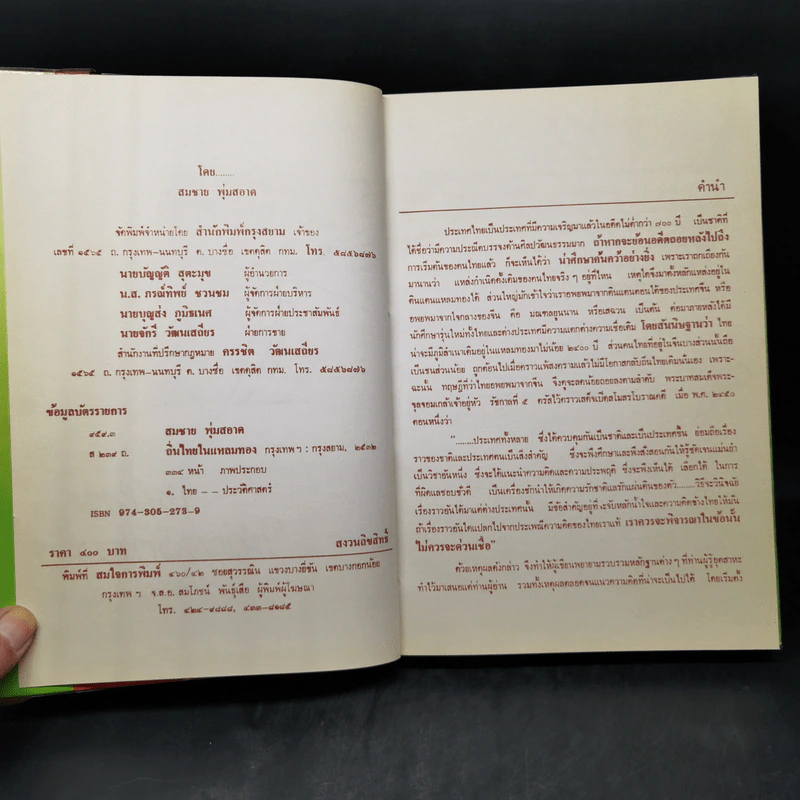 โดย........
สมชาย พุ่มสอาด
จัดพิมพ์จำหน่ายโดย สำนักพิมพ์กรุงสยาม เจ้าของ
เลขที่ ๑๕๖๕ ถ. กรุงเทพ-นนทบุรี ต. บางซื่อ เขตดุสิต กทม. โทร. ๕๘๕๖๘๗๖
นายบัญญัติ สุตะมุข ผู้อำนวยการ
น.ส. ภรณ์ทิพย์ ชวนชม ผู้จัดการฝ่ายบริหาร
นายบุญส่ง ภูมิธเนศ ผู้จัดการฝ่ายประชาสัมพันธ์
นายจักรี วัฒนเสถียร ฝ่ายการขาย
สำนักงานที่ปรึกษากฎหมาย ครรชิต วัฒนเสถียร
๑๕๖๕ ถ. กรุงเทพ-นนทบุรี ต. บางซื่อ เขตดุสิต กทม. โทร. ๕๘๕๖๘๗๖
ข้อมูลบัตรรายการ
๙๕๙.๓ สมชาย พุ่มสอาด
ส ๒๓๙ ถ. ถิ่นไทยในแหลมทอง กรุงเทพฯ : กรุงสยาม, ๒๕๓๒
๓๓๔ หน้า ภาพประกอบ
๑. ไทย -- ประวัติศาสตร์
ISBN 974-305-273-9
ราคา ๔๐๐ บาท สงวนลิขสิทธิ์
พิมพ์ที่ สมใจการพิมพ์ ๔๖๐/๔๒ ซอยสุวรรณิน แขวงบางยี่ขัน เขตบางกอกน้อย
กรุงเทพฯ จ.ส.อ. สมโภชน์ พันธุ์เสือ ผู้พิมพ์ผู้โฆษณา
โทร. ๔๒๔-๙๘๘๘, ๔๓๓-๘๑๘๕
คำนำ
ประเทศไทยเป็นประเทศที่มีความเจริญมาแล้วในอดีตไม่ต่ำกว่า ๗๐๐ ปี เป็นชาติที่
ได้ชื่อว่ามีความประณีตบรรจงด้านศิลปวัฒนธรรมมาก ถ้าหากจะย้อนอดีตถอยหลังไปถึง
การเริ่มต้นของคนไทยแล้ว ก็จะเห็นได้ว่า น่าศึกษาค้นคว้าอย่างยิ่ง เพราะเราถกเถียงกัน
มานานว่า แหล่งกำเนิดดั้งเดิมของคนไทยจริงๆ อยู่ที่ไหน เหตุใดจึงมาตั้งหลักแหล่งอยู่ใน
ดินแดนแหลมทองได้ ส่วนใหญ่มักเข้าใจว่าอพยพมาจากดินแดนตอนใต้ของประเทศจีน หรือ
อพยพมาจากใจกลางของจีน คือ มณฑลยูนนาน หรือเสฉวน เป็นต้น ต่อมาภายหลังได้มี
นักศึกษารุ่นใหม่ทั้งไทยและต่างประเทศมีความแตกต่างความเชื่อเดิม โดยสันนิษฐานว่า ไทย
น่าจะมีภูมิลำเนาเดิมอยู่ในแหลมทองมาไม่น้อย ๒๔๐๐ ปี ส่วนคนไทยที่อยู่ในจีนบางส่วนนั้นถือ
เป็นชนส่วนน้อย ถูกต้อนไปเมื่อคราวแพ้สงครามแล้วไม่มีโอกาสกลับถิ่นไทยเดิมนั่นเอง เพราะ-
ฉะนั้น ทฤษฎีที่ว่าไทยอพยพมาจากจีน จึงดูจะลดน้อยถอยลงตามลำดับ พระบาทสมเด็จพระ-
จุลจอมเกล้าเจ้าอยู่หัว รัชกาลที่ ๕ ตรัสไว้คราวเสด็จเปิดสโมสรโบราณคดี เมื่อ พ.ศ. ๒๔๕๐
ตอนหนึ่งว่า
"........ประเทศทั้งหลาย ซึ่งได้ควบคุมกันเป็นชาติและเป็นประเทศขึ้น ย่อมถือเรื่อง
ราวของชาติและประเทศตนเป็นสิ่งสำคัญ ซึ่งจะพึงศึกษาและพึงสั่งสอนกันให้รู้ชัดเจนแม่นยำ
เป็นวิชาอันหนึ่ง ซึ่งจะได้แนะนำความคิดและความประพฤติ ซึ่งจะพึงเห็นได้ เลือกได้ ในการ
ที่ผิดแลชอบชั่วดี เป็นเครื่องชักนำให้เกิดความรักชาติและรักแผ่นดินของตัว........วิธีจะวินิจฉัย
เรื่องราวอันใดได้มาแต่ต่างประเทศนั้น มีข้อสำคัญอยู่ที่จะจับหลักน้ำใจและความคิดข้างไทยให้มั่น
ถ้าเรื่องราวอันใดแปลกไปจากประเพณีความคิดของไทยเราแท้ เราควรจะพิจารณาในข้อนั้น
ไม่ควรจะด่วนเชื่อ"
ด้วยเหตุผลดังกล่าว จึงทำให้ผู้เขียนพยายามรวบรวมหลักฐานต่างๆ ที่ท่านผู้รู้อุตสาหะ
ทำไว้มาเสนอแด่ท่านผู้อ่าน รวมทั้งเหตุผลตลอดจนแนวความคิดที่น่าจะเป็นไปได้ โดยเริ่มตั้ง